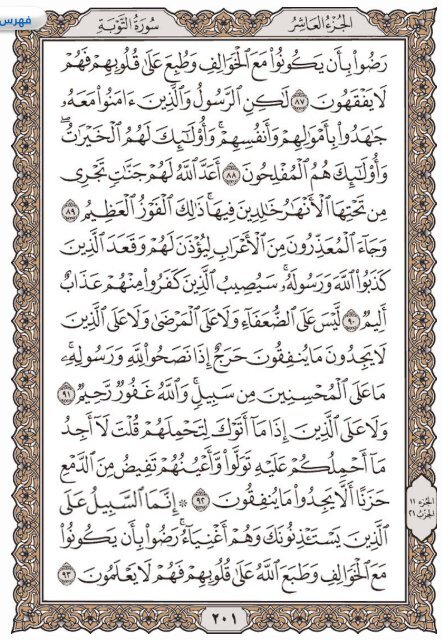 فهرس
سُورَةُ التَّوْبَةِ
الجُزْءُ العَاشِرُ
رَضُوا۟ بِأَن يَكُونُوا۟ مَعَ ٱلْخَوَالِفِ وَطُبِعَ عَلَىٰ قُلُوبِهِمْ فَهُمْ
لَا يَفْقَهُونَ ٨٧ لَٰكِنِ ٱلرَّسُولُ وَٱلَّذِينَ ءَامَنُوا۟ مَعَهُۥ
جَٰهَدُوا۟ بِأَمْوَٰلِهِمْ وَأَنفُسِهِمْ ۚ وَأُو۟لَٰٓئِكَ لَهُمُ ٱلْخَيْرَٰتُ ۖ
وَأُو۟لَٰٓئِكَ هُمُ ٱلْمُفْلِحُونَ ٨٨ أَعَدَّ ٱللَّهُ لَهُمْ جَنَّٰتٍ تَجْرِى
مِن تَحْتِهَا ٱلْأَنْهَٰرُ خَٰلِدِينَ فِيهَا ۚ ذَٰلِكَ ٱلْفَوْزُ ٱلْعَظِيمُ ٨٩
وَجَآءَ ٱلْمُعَذِّرُونَ مِنَ ٱلْأَعْرَابِ لِيُؤْذَنَ لَهُمْ وَقَعَدَ ٱلَّذِينَ
كَذَبُوا۟ ٱللَّهَ وَرَسُولَهُۥ ۚ سَيُصِيبُ ٱلَّذِينَ كَفَرُوا۟ مِنْهُمْ عَذَابٌ
أَلِيمٌ ٩٠ لَّيْسَ عَلَى ٱلضُّعَفَآءِ وَلَا عَلَى ٱلْمَرْضَىٰ وَلَا عَلَى ٱلَّذِينَ
لَا يَجِدُونَ مَا يُنفِقُونَ حَرَجٌ إِذَا نَصَحُوا۟ لِلَّهِ وَرَسُولِهِۦ ۚ
مَا عَلَى ٱلْمُحْسِنِينَ مِن سَبِيلٍ ۚ وَٱللَّهُ غَفُورٌ رَّحِيمٌ ٩١
وَلَا عَلَى ٱلَّذِينَ إِذَا مَآ أَتَوْكَ لِتَحْمِلَهُمْ قُلْتَ لَآ أَجِدُ
مَآ أَحْمِلُكُمْ عَلَيْهِ تَوَلَّوا۟ وَّأَعْيُنُهُمْ تَفِيضُ مِنَ ٱلدَّمْعِ
حَزَنًا أَلَّا يَجِدُوا۟ مَا يُنفِقُونَ ٩٢ ۞ إِنَّمَا ٱلسَّبِيلُ عَلَى
ٱلَّذِينَ يَسْتَـْٔذِنُونَكَ وَهُمْ أَغْنِيَآءُ ۚ رَضُوا۟ بِأَن يَكُونُوا۟
مَعَ ٱلْخَوَالِفِ وَطَبَعَ ٱللَّهُ عَلَىٰ قُلُوبِهِمْ فَهُمْ لَا يَعْلَمُونَ ٩٣
الجزء ١١
الحزب ٢١
٢٠١